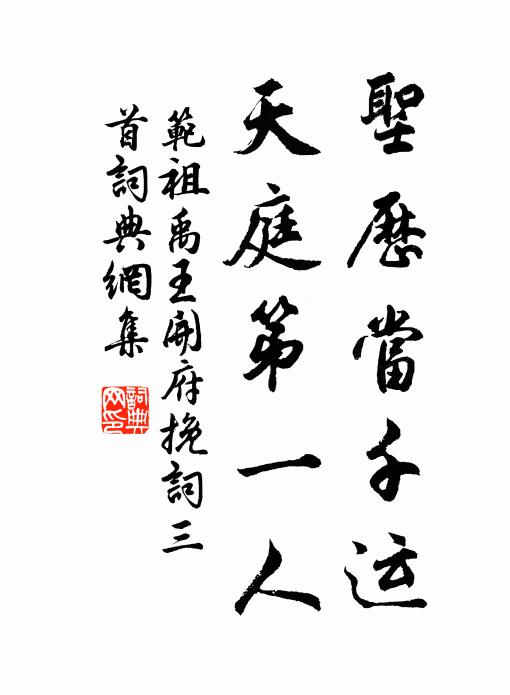 聖歷當千运
天庭第一人
範祖禹王開府挽詞三
首詞典網集
詞典网印